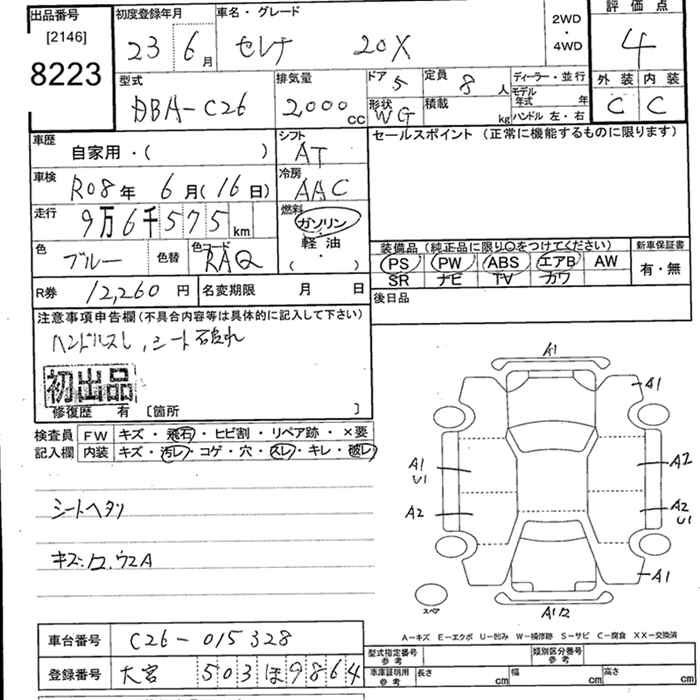 出品番号
[2146]
8223
初度登録年月
23 6月
車名・グレード
セレナ 20X
2WD
・
4WD
評価点
4
型式
DBA-C26
排気量
2000cc
ドア 5
定員 8人
形状 WG
積載 kg
ディーラー・並行
モデル年式 年
ハンドル 左・右
外装 内装
C C
車歴
自家用・( )
シフト
AT
セールスポイント (正常に機能するものに限ります)
車検
R08年 6月(16日)
冷房
AAC
走行
9万6千575km
燃料
ガソリン
軽油
・
( )
色
ブルー
色替
色コード
RAQ
装備品 (純正品に限り○をつけてください)
PS PW ABS エアB AW
SR ナビ TV カワ
新車保証書
有・無
R券 12,260円
名変期限 月 日
後日品
注意事項申告欄(不具合内容等は具体的に記入して下さい)
ハンドルスレ,シート破れ
初出品
修復歴 有 [箇所 ]
検査員 FW キズ・飛石・ヒビ割・リペア跡・×要
記入欄 内装 キズ・汚レ・コゲ・穴・スレ・キレ・破レ
シートヘタリ
A1
A1
A1
U1
A2
A2
A2
U1
A1
スペア
A1
A-キズ E-エクボ U-凹み W-補修跡 S-サビ C-腐食 XX-交換済
車台番号 C26-015328
登録番号 大宮 503 ほ 9864
型式指定番号
参考
類別区分番号
参考
車庫証明用
参考
長さ cm 幅 cm 高さ cm